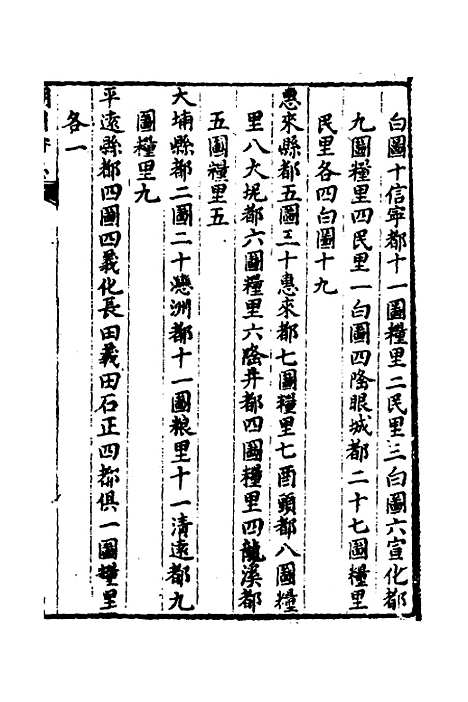 白圖十信寧都十一圖糧里二民里三白圖六宣化都
九圖糧里四民里一白圖四隆眼城都二十七圖糧里
民里各四白圖十九
惠來縣都五圖三十惠來都七圖糧里七酉頭都八圖糧
里八大坭都六圖糧里六隆井都四圖糧里四龍溪都
五圖糧里五
大埔縣都二圖二十㦃洲都十一圖粮里十一清遠都九
圖糧里九
平遠縣都四圖四義化長田義田石正四都俱一圖糧里
各一